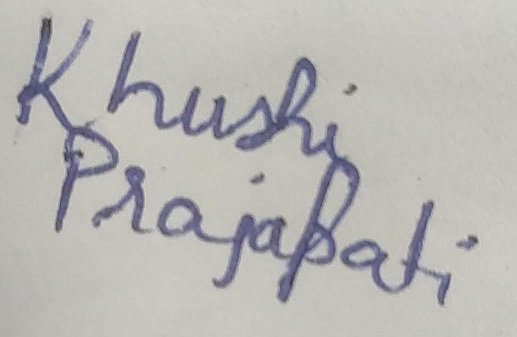 Khushi
Prajapati